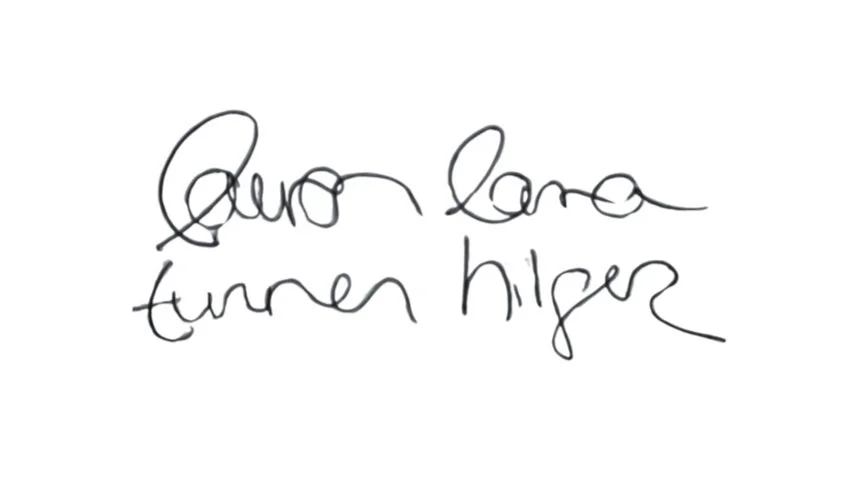 lauron lana
turner hilger